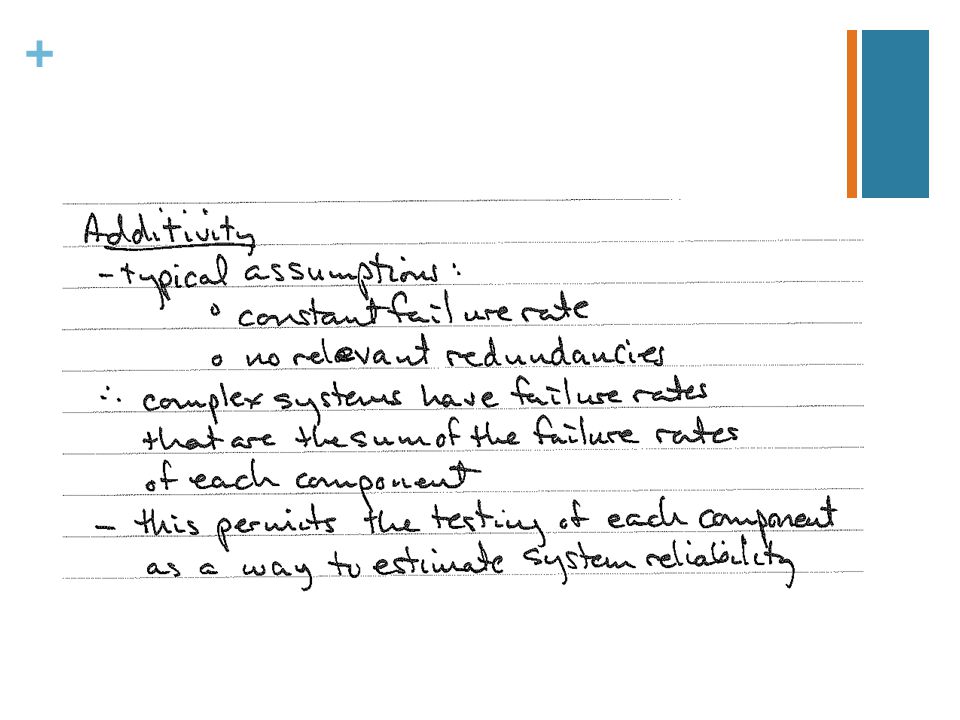 +
Additivity
- typical assumptions:
° constant failure rate
° no relevant redundancies
∴ complex systems have failure rates
that are the sum of the failure rates
of each component
- this permits the testing of each component
as a way to estimate system reliability